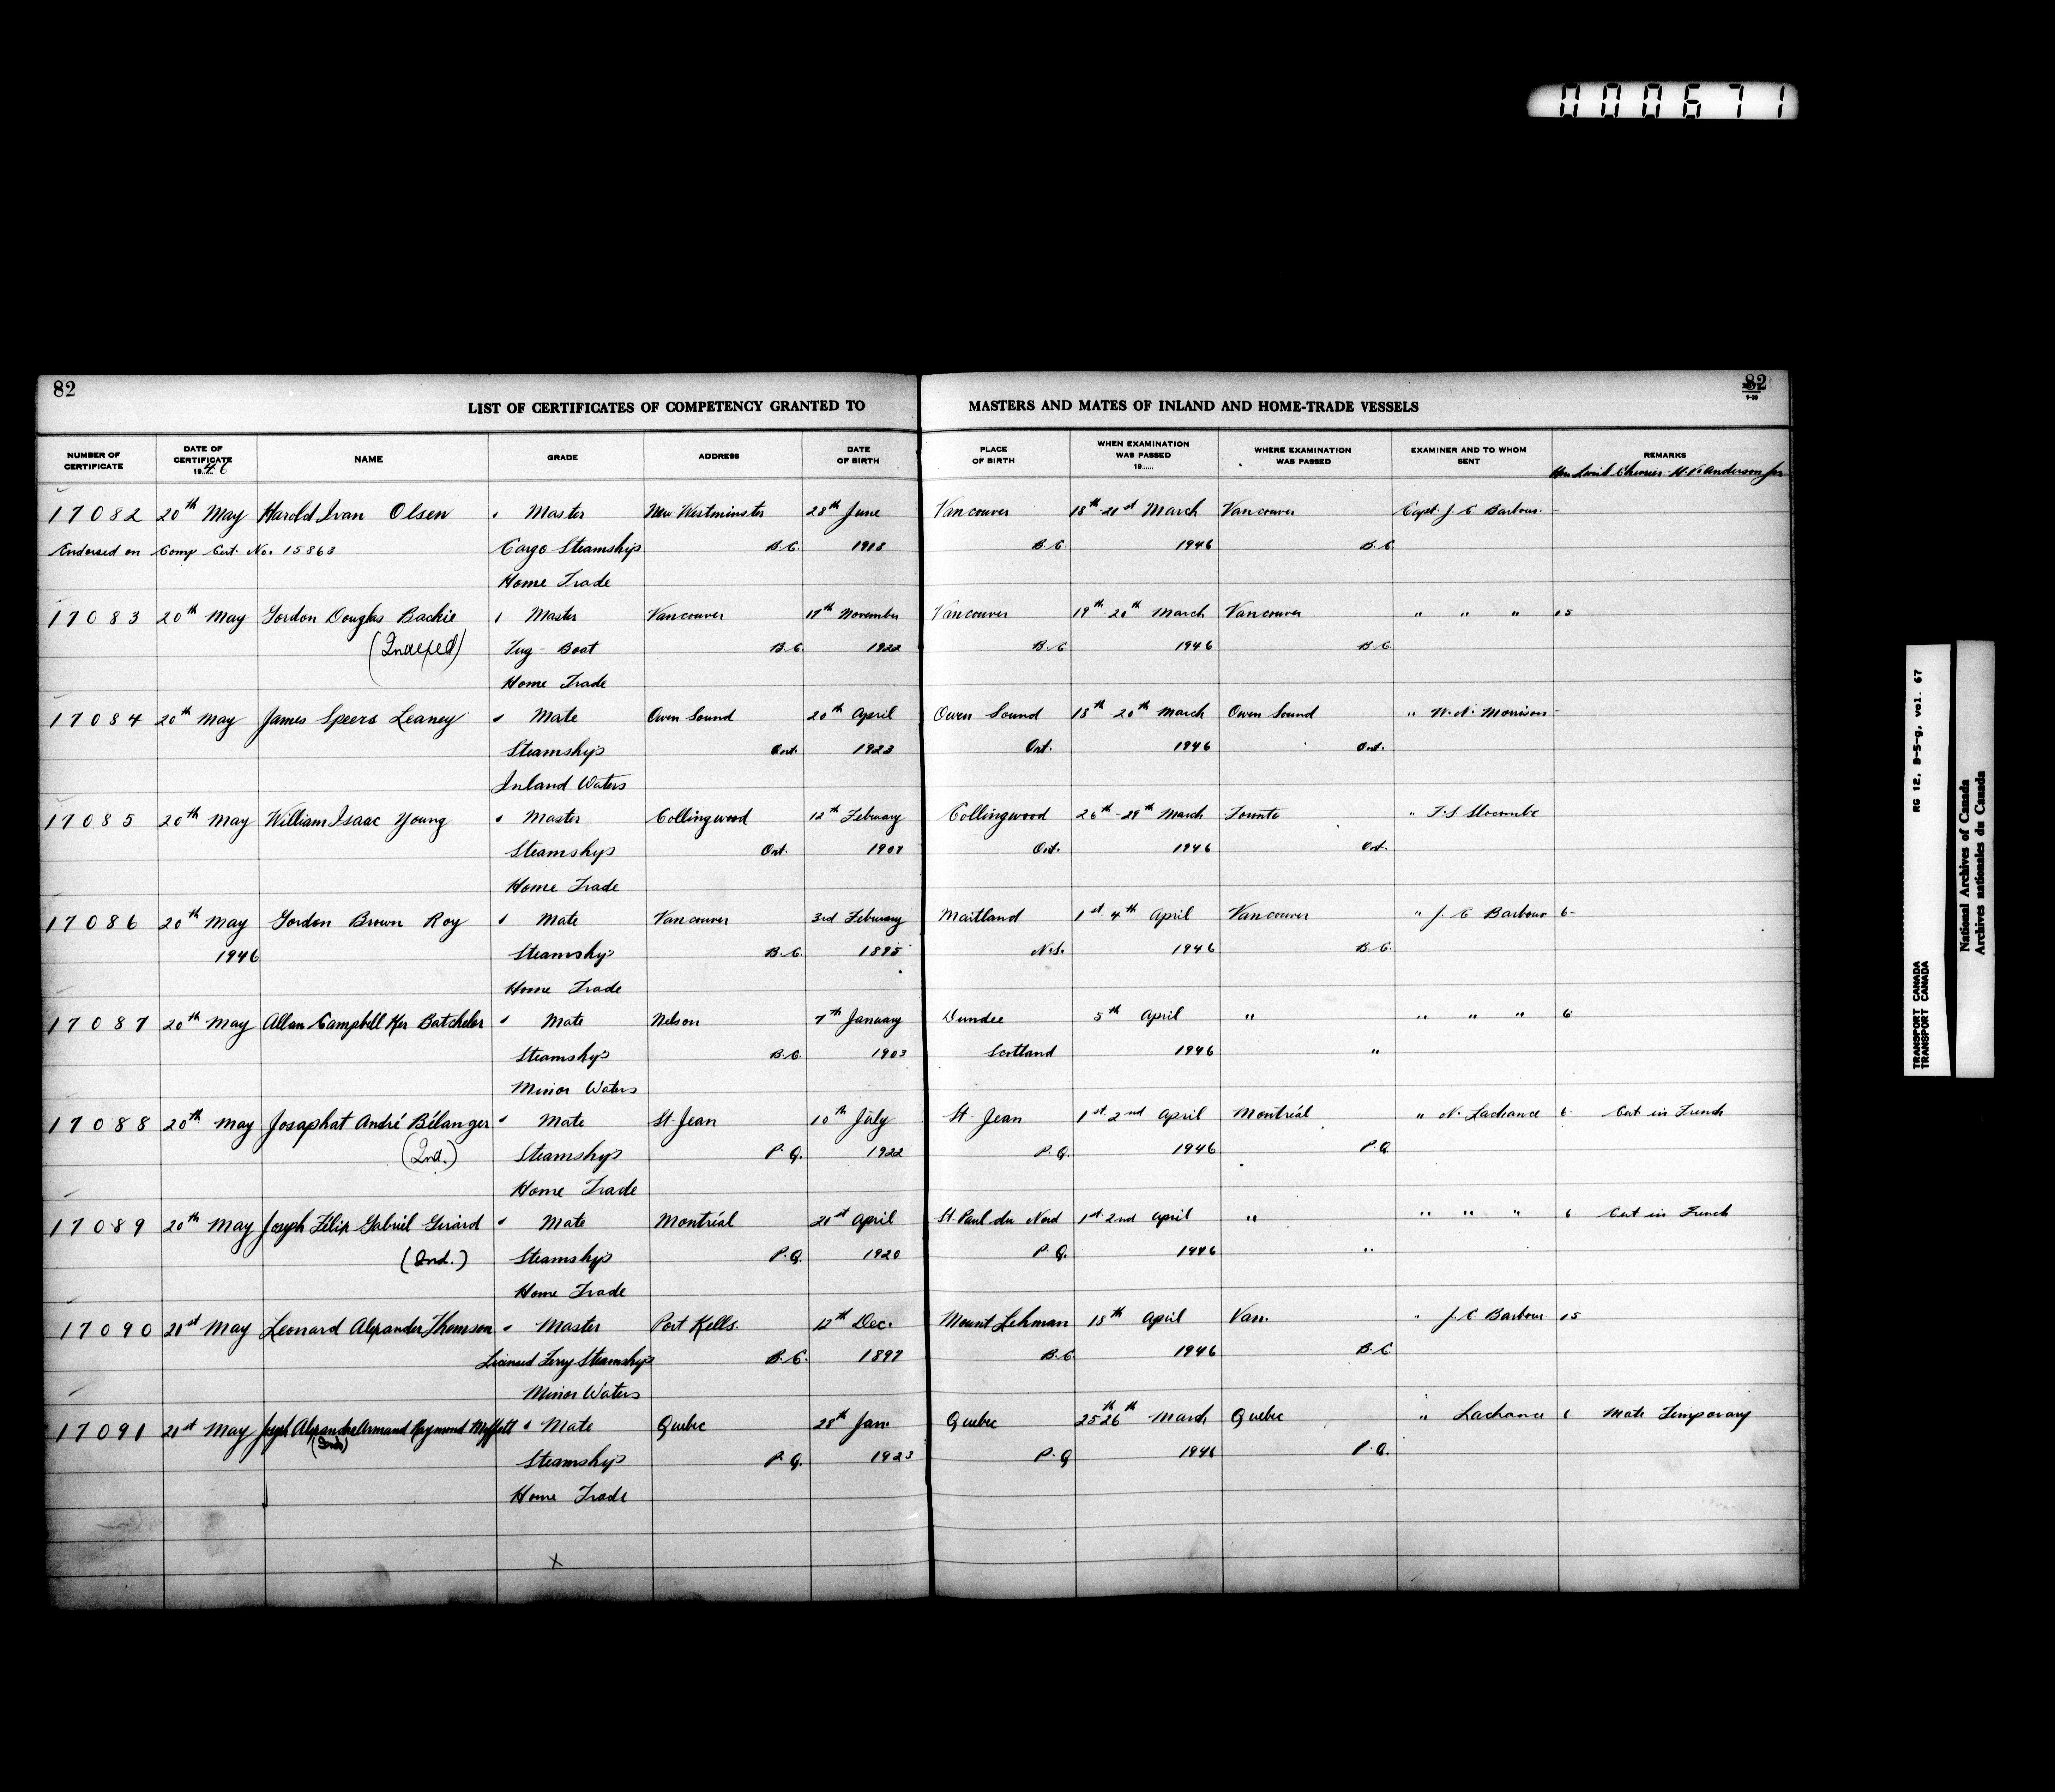 000671
82
82
LIST OF CERTIFICATES OF COMPETENCY GRANTED TO MASTERS AND MATES OF INLAND AND HOME-TRADE VESSELS
NUMBER OF CERTIFICATE DATE OF CERTIFICATE 1946 NAME GRADE ADDRESS DATE OF BIRTH PLACE OF BIRTH WHEN EXAMINATION WAS PASSED 19...... WHERE EXAMINATION WAS PASSED EXAMINER AND TO WHOM SENT REMARKS
Hon Lionel Chevrier - H. V. Anderson for
17082 20th May Harold Ivan Olsen Master New Westminster 28th June Vancouver 18th-21st March Vancouver Capt. J. C Barbour. -
Endorsed on Comp Cert. No. 15863 Cargo Steamships B.C. 1918 B.C. 1946 B.C.
Home Trade
17083 20th May Gordon Douglas Backie Master Vancouver 17th November Vancouver 19th-20th March Vancouver " " " 15
(Indexed) Tug-Boat B.C. 1922 B.C. 1946 B.C.
Home Trade
17084 20th May James Speers Leaney Mate Owen Sound 20th April Owen Sound 18th 20th March Owen Sound " W. N. Morrison -
Steamships Ont. 1923 Ont. 1946 Ont.
Inland Waters
17085 20th May William Isaac Young Master Collingwood 12th February Collingwood 26th-29th March Toronto " F. S Slocombe
Steamships Ont. 1907 Ont. 1946 Ont.
Home Trade
17086 20th May Gordon Brown Roy Mate Vancouver 3rd February Maitland 1st-4th April Vancouver " J. C Barbour 6-
1946 Steamships B.C. 1895 N.S. 1946 B.C.
Home Trade
17087 20th May Allan Campbell Ker Batchelor Mate Nelson 7th January Dundee 5th April " " " " 6
Steamships B.C. 1903 Scotland 1946 "
Minor Waters
17088 20th May Josaphat André Bélanger Mate St Jean 10th July St. Jean 1st 2nd April Montréal " N. Lachance 6 Cert in French
(Ind.) Steamships P.Q. 1922 P.Q. 1946 P.Q.
Home Trade
17089 20th May Joseph Felix Gabriel Girard Mate Montréal 21st April St. Paul du Nord 1st 2nd April " " " " 6 Cert in French
(Ind.) Steamships P.Q. 1920 P.Q. 1946 "
Home Trade
17090 21st May Leonard Alexander Thomson Master Port Kells. 12th Dec. Mount Lehman 15th April Van. " J. C Barbour 15
Licensed Ferry Steamships B.C. 1897 B.C. 1946 B.C.
Minor Waters
17091 21st May Joseph Alexandre Armand Raymond Mate Quebec 28th Jan. Quebec 25th 26th March Quebec " Lachance 6 Mate Temporary
(Ind) Steamships P.Q. 1923 P.Q 1946 P.Q.
Home Trade
X
RG 12, B-5-g, vol. 67
TRANSPORT CANADA
TRANSPORT CANADA
National Archives of Canada
Archives nationales du Canada